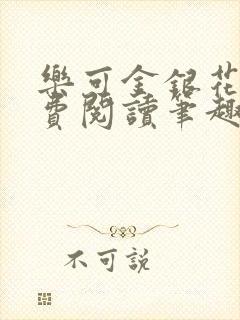 樂可金銀花
費閱讀筆趣
不可說